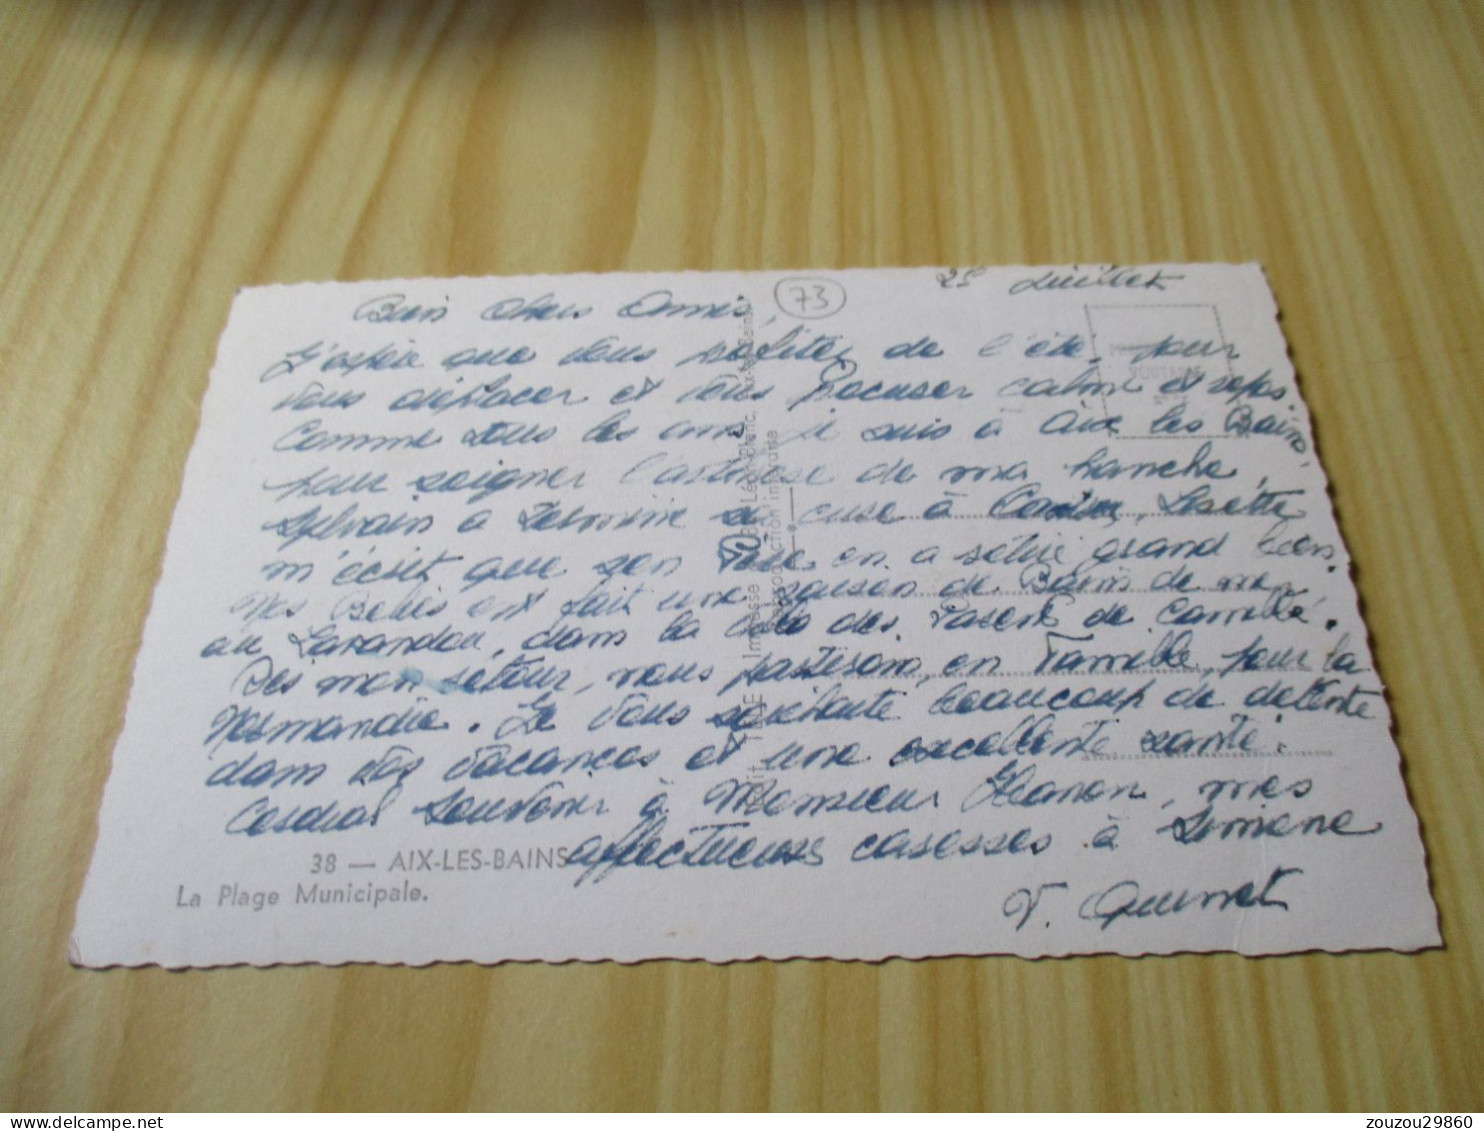 25 Juillet
73
Bien Chers Amis,
J'espère que vous profitez de l'été, pour
vous déplacer et vous procurer calme et repos.
Comme tous les ans, je suis à Aix les Bains,
pour soigner l'arthrose de ma hanche,
Sylvain a terminé sa cure à Lisette
m'écrit que son Père en a retiré grand bien.
Nos Bébés ont fait une saison de Bains de mer
au Lavandou, dans la des Parents de Camille.
Dès mon retour, nous partirons, en Famille, pour la
Normandie. Je vous souhaite beaucoup de détente
dans vos vacances et une excellente santé.
Cordial Souvenir à Monsieur mes
affectueuses caresses à Simone
38 — AIX-LES-BAINS
La Plage Municipale.
zouzou29860